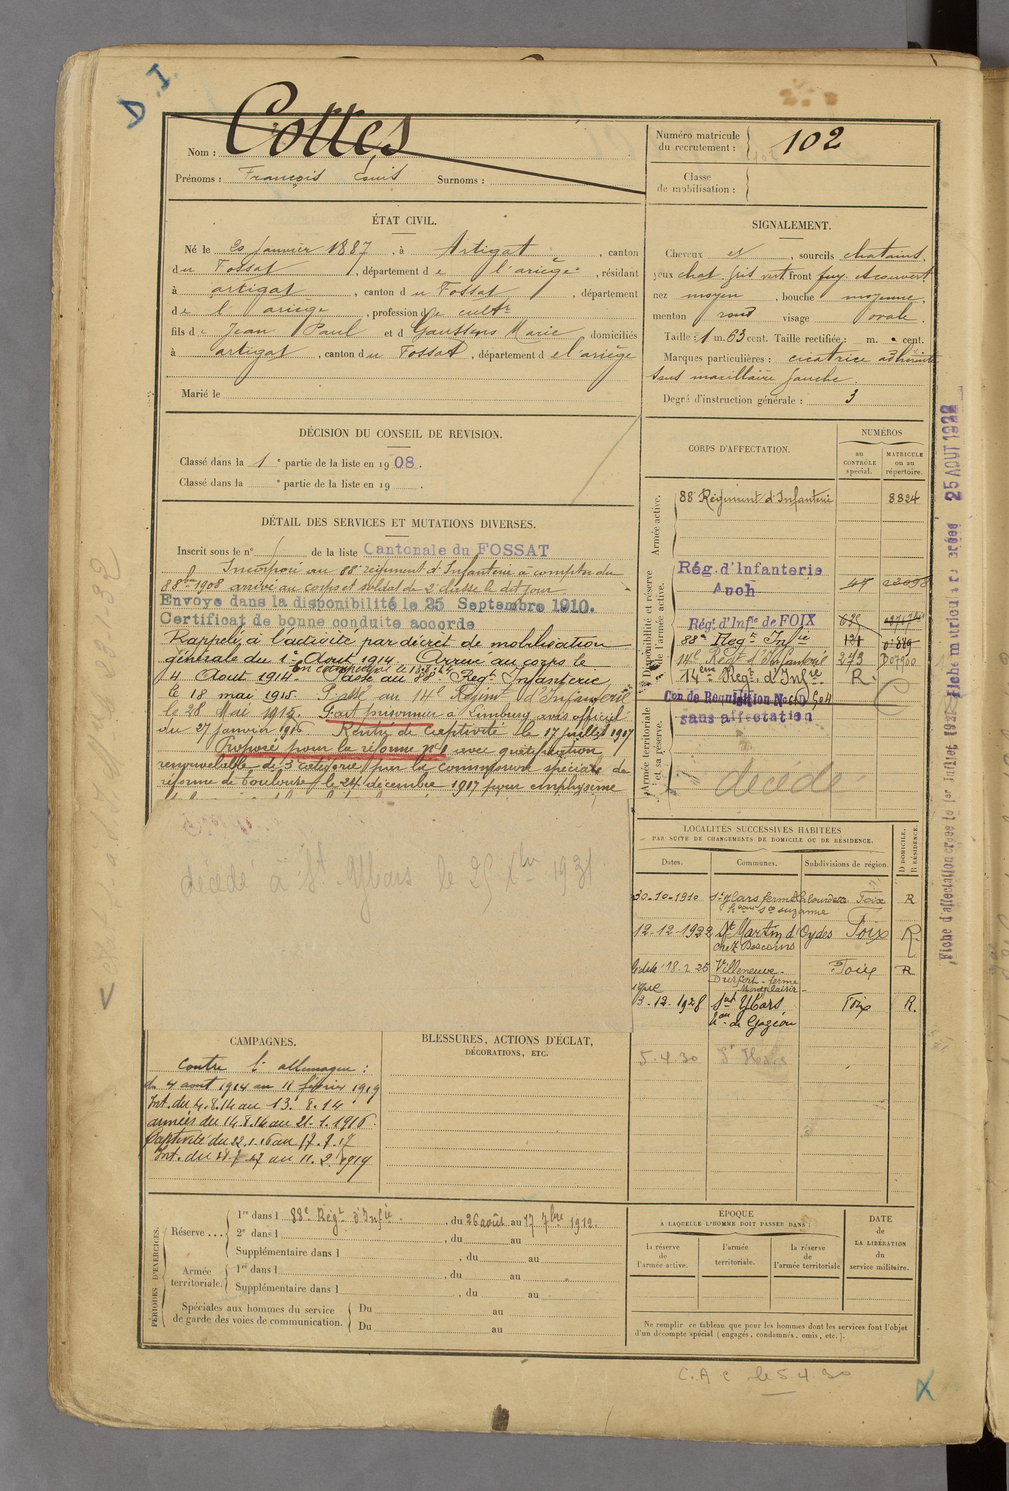 D.I.
Nom : Cottes
Prénoms : François Louis Surnoms :
Numéro matricule du recrutement : 102
Classe de mobilisation :
ÉTAT CIVIL.
Né le 20 Janvier 1887, à Artigat, canton
du Fossat, département de l'ariège, résidant
à artigat, canton du Fossat, département
de l'ariège, profession de cultr
fils de Jean Paul et de Gaussens Marie domiciliés
à artigat, canton du Fossat, département de l'ariège
Marié le
SIGNALEMENT.
Cheveux et, sourcils chatains
yeux chat. gris vert front fuy. et couvert
nez moyen, bouche moyenne,
menton rond visage ovale.
Taille : 1 m. 63 cent. Taille rectifiée : m. cent.
Marques particulières : cicatrice adhérente
sous maxillaire gauche.
Degré d'instruction générale : 3
DÉCISION DU CONSEIL DE REVISION.
Classé dans la 1e partie de la liste en 1908.
Classé dans la e partie de la liste en 19 .
DÉTAIL DES SERVICES ET MUTATIONS DIVERSES.
Inscrit sous le n° de la liste Cantonale du FOSSAT
Incorporé au 88e régiment d'Infanterie à compter du
8 8bre 1908 arrivé au corps et soldat de 2e classe le dit jour
Envoyé dans la disponibilité le 25 Septembre 1910.
Certificat de bonne conduite accordé
Rappelé à l'activité par décret de mobilisation
générale du 1er Aout 1914. Arrivé au corps le
4 Aout 1914. Passé au 88e Regt Infanterie
le 18 mai 1915. Passé au 14e Régimt d'Infanterie
le 28 Mai 1915. Fait prisonnier à Limburg avis officiel
du 27 janvier 1916. Rentré de captivité le 17 juillet 1917
Proposé pour la réforme n°1 avec gratification
renouvelable de 5e catégorie par la commission spéciale de
réforme de Toulouse le 24 décembre 1917 pour emphysème
décédé à St. Ybars le 25 1931
CORPS D'AFFECTATION.
NUMÉROS
au CONTRÔLE spécial.
MATRICULE ou au répertoire.
Armée active.
88e Régiment d'Infanterie 8824
Disponibilité et réserve de l'armée active.
Rég. d'Infanterie
Auch
Régt. d'Infie de FOIX
88e Regt Infie
14e Regt d'Infanterie 273
14eme Regt. d'Infie R.
Armée territoriale et sa réserve.
sans affectation
décédé
LOCALITÉS SUCCESSIVES HABITÉES
PAR SUITE DE CHANGEMENTS DE DOMICILE OU DE RÉSIDENCE.
Dates. Communes. Subdivisions de région. D DOMICILE. R RÉSIDENCE.
30-10-1910 St Ybars ferme Labourdette Foix R
hau Ste suzanne
12-12-1922 St Martin d'Oydes Foix R.
chez Descoins
18.2.25 Villeneuve- Foix R
Durfort - ferme
Monplaisir
3-12-1928 Snt Ybars Foix R.
hau de Gazéou
5.4.30 St Ybars
CAMPAGNES.
Contre l'allemagne :
du 4 aout 1914 au 11 février 1919
Int. du 4.8.14 au 13.8.14
armées du 14.8.14 au 21.1.1916
Captivité du 22.1.16 au 17.7.17
Int. du 18.7.17 au 11.2.1919
BLESSURES, ACTIONS D'ÉCLAT,
DÉCORATIONS, ETC.
PÉRIODES D'EXERCICES.
Réserve ... 1re dans l 88e Régt d'Infie., du 26 août au 17 7bre 1912.
2e dans l , du au
Supplémentaire dans l , du au
Armée territoriale. 1re dans l , du au
Supplémentaire dans l , du au
Spéciales aux hommes du service
de garde des voies de communication. Du au
Du au
ÉPOQUE
À LAQUELLE L'HOMME DOIT PASSER DANS
la réserve de l'armée active.
l'armée territoriale.
la réserve de l'armée territoriale
DATE DE LA LIBÉRATION du service militaire.
Ne remplir ce tableau que pour les hommes dont les services font l'objet
d'un décompte spécial (engagés, condamnés, omis, etc.).
C.A.C. le 5.4.30
X
25 AOUT 1928